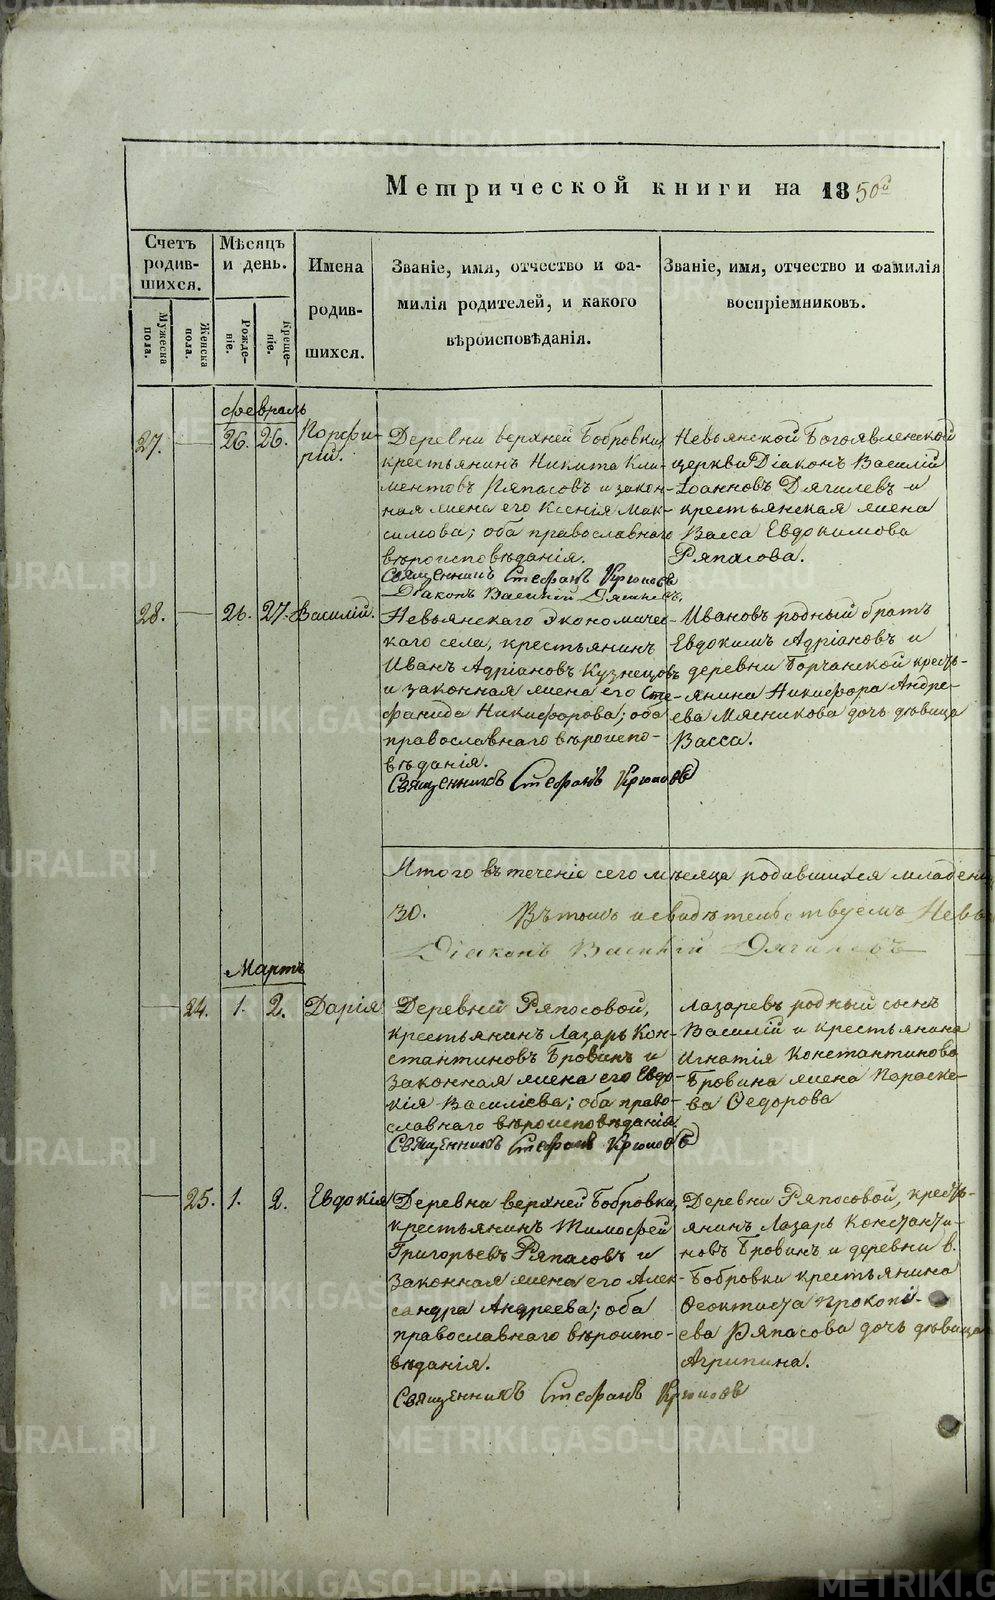 Метрической книги на 1850й
Счетъ родившихся.
Мѣсяцъ и день.
Имена родившихся.
Званіе, имя, отчество и фамилія родителей, и какого вѣроисповѣданія.
Званіе, имя, отчество и фамилія воспріемниковъ.
Мужеска пола.
Женска пола.
Рожденіе.
Крещеніе.
Февраль
27. 26. 26. Порфирій.
Деревни верхней Бобровки
крестьянинъ Никита Кли-
ментовъ Ряпасовъ и закон-
ная жена его Ксенія Мак-
симова; оба православнаго
вѣроисповѣданія.
Священникъ Стефанъ Крюковъ
Діаконъ Василій Дягилевъ.
Невьянской Богоявленской
церкви Діаконъ Василій
Іоанновъ Дягилевъ и
крестьянская жена
Васса Евдокимова
Ряпасова.
28. 26. 27. Василій.
Невьянскаго Экономичес-
каго села, крестьянинъ
Иванъ Адріановъ Кузнецовъ
и законная жена его Сте-
фанида Никифорова; оба
православнаго вѣроиспо-
вѣданія.
Священникъ Стефанъ Крюковъ
Ивановъ родный братъ
Евдокимъ Адріановъ и
деревни Борчанской кресть-
янина Никифора Андре-
ева Мясникова дочь дѣвица
Васса.
Итого въ теченіе сего мѣсяца родившихся младен
30. Въ томъ и свидѣтельствуемъ Невь
Діаконъ Василій Дягилевъ
Мартъ
24. 1. 2. Дарія
Деревни Ряпосовой,
крестьянинъ Лазарь Кон-
стантиновъ Бровинъ и
законная жена его Евдо-
кія Василіева; оба право-
славнаго вѣроисповѣданія.
Священникъ Стефанъ Крюковъ
Лазаревъ родный сынъ
Василій и крестьянина
Игнатія Константинова
Бровина жена Параске-
ва Ѳедорова
25. 1. 2. Евдокія
Деревни верхней Бобровки,
крестьянинъ Тимофей
Григорьевъ Ряпасовъ и
законная жена его Алек-
сандра Андреева; оба
православнаго вѣроиспо-
вѣданія.
Священникъ Стефанъ Крюковъ
Деревни Ряпосовой, кресть-
янинъ Лазарь Константи-
новъ Бровинъ и деревни в.
Бобровки крестьянина
Ѳеоктиста Прокопі-
ева Ряпасова дочь дѣвица
Агрипина.
METRIKI.GASO-URAL.RU